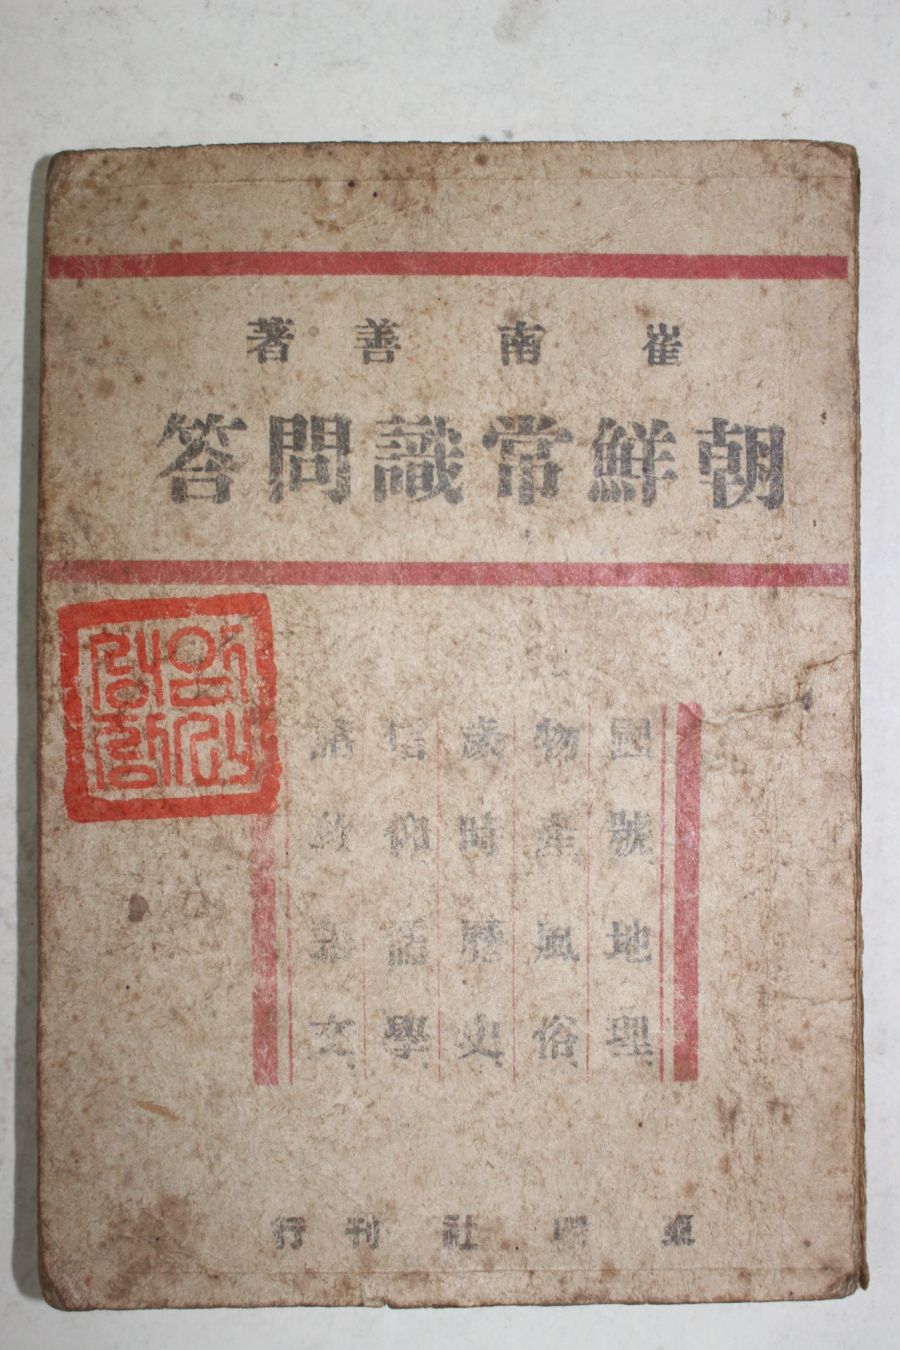 崔南善著
朝鮮常識問答
國號、地理、
物産、風俗、
歲時、歷史、
信仰、儒學、
諸敎、語文、
東明社刊行